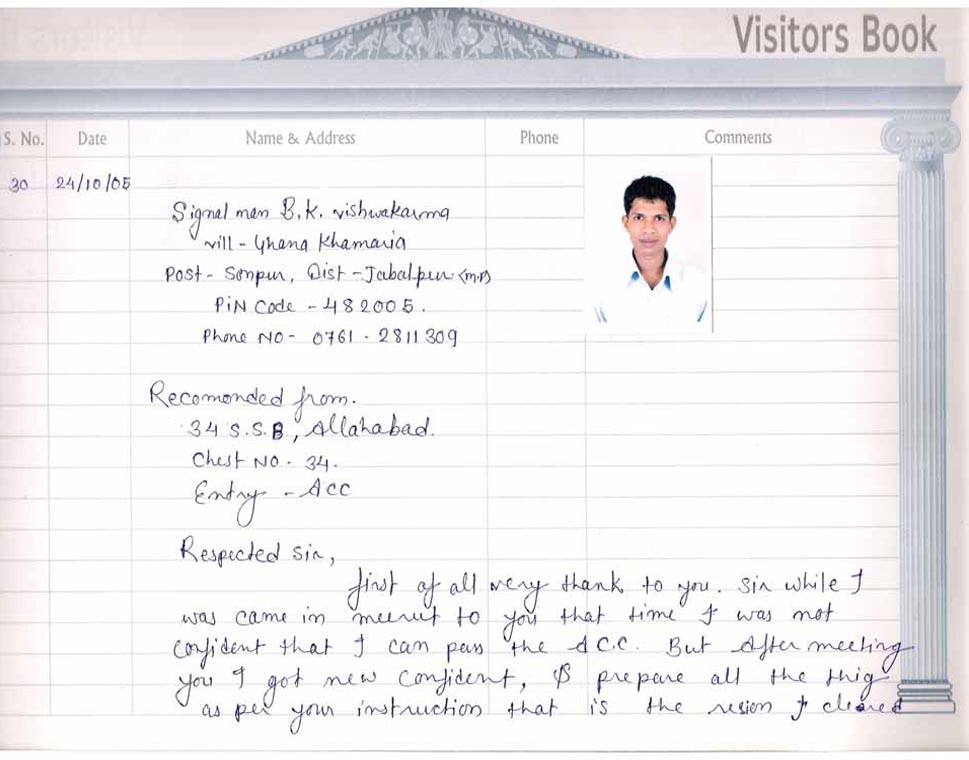 Visitors Book
S. No. Date Name & Address Phone Comments
30 24/10/05
Signal man B.K. vishwakarma
vill - Ghana Khamaria
Post - Sonpur, Dist - Jabalpur (M.P)
PiN Code - 482005.
Phone NO - 0761 - 2811309
Recomonded from.
34 S.S.B, Allahabad.
Chest NO - 34.
Entry - ACC
Respected Sir,
first of all very thank to you. Sir while I
was came in meerut to you that time I was not
confident that I can pass the ACC. But After meeting
you I got new confident, & prepare all the thig
as per your instruction that is the resion I cleared